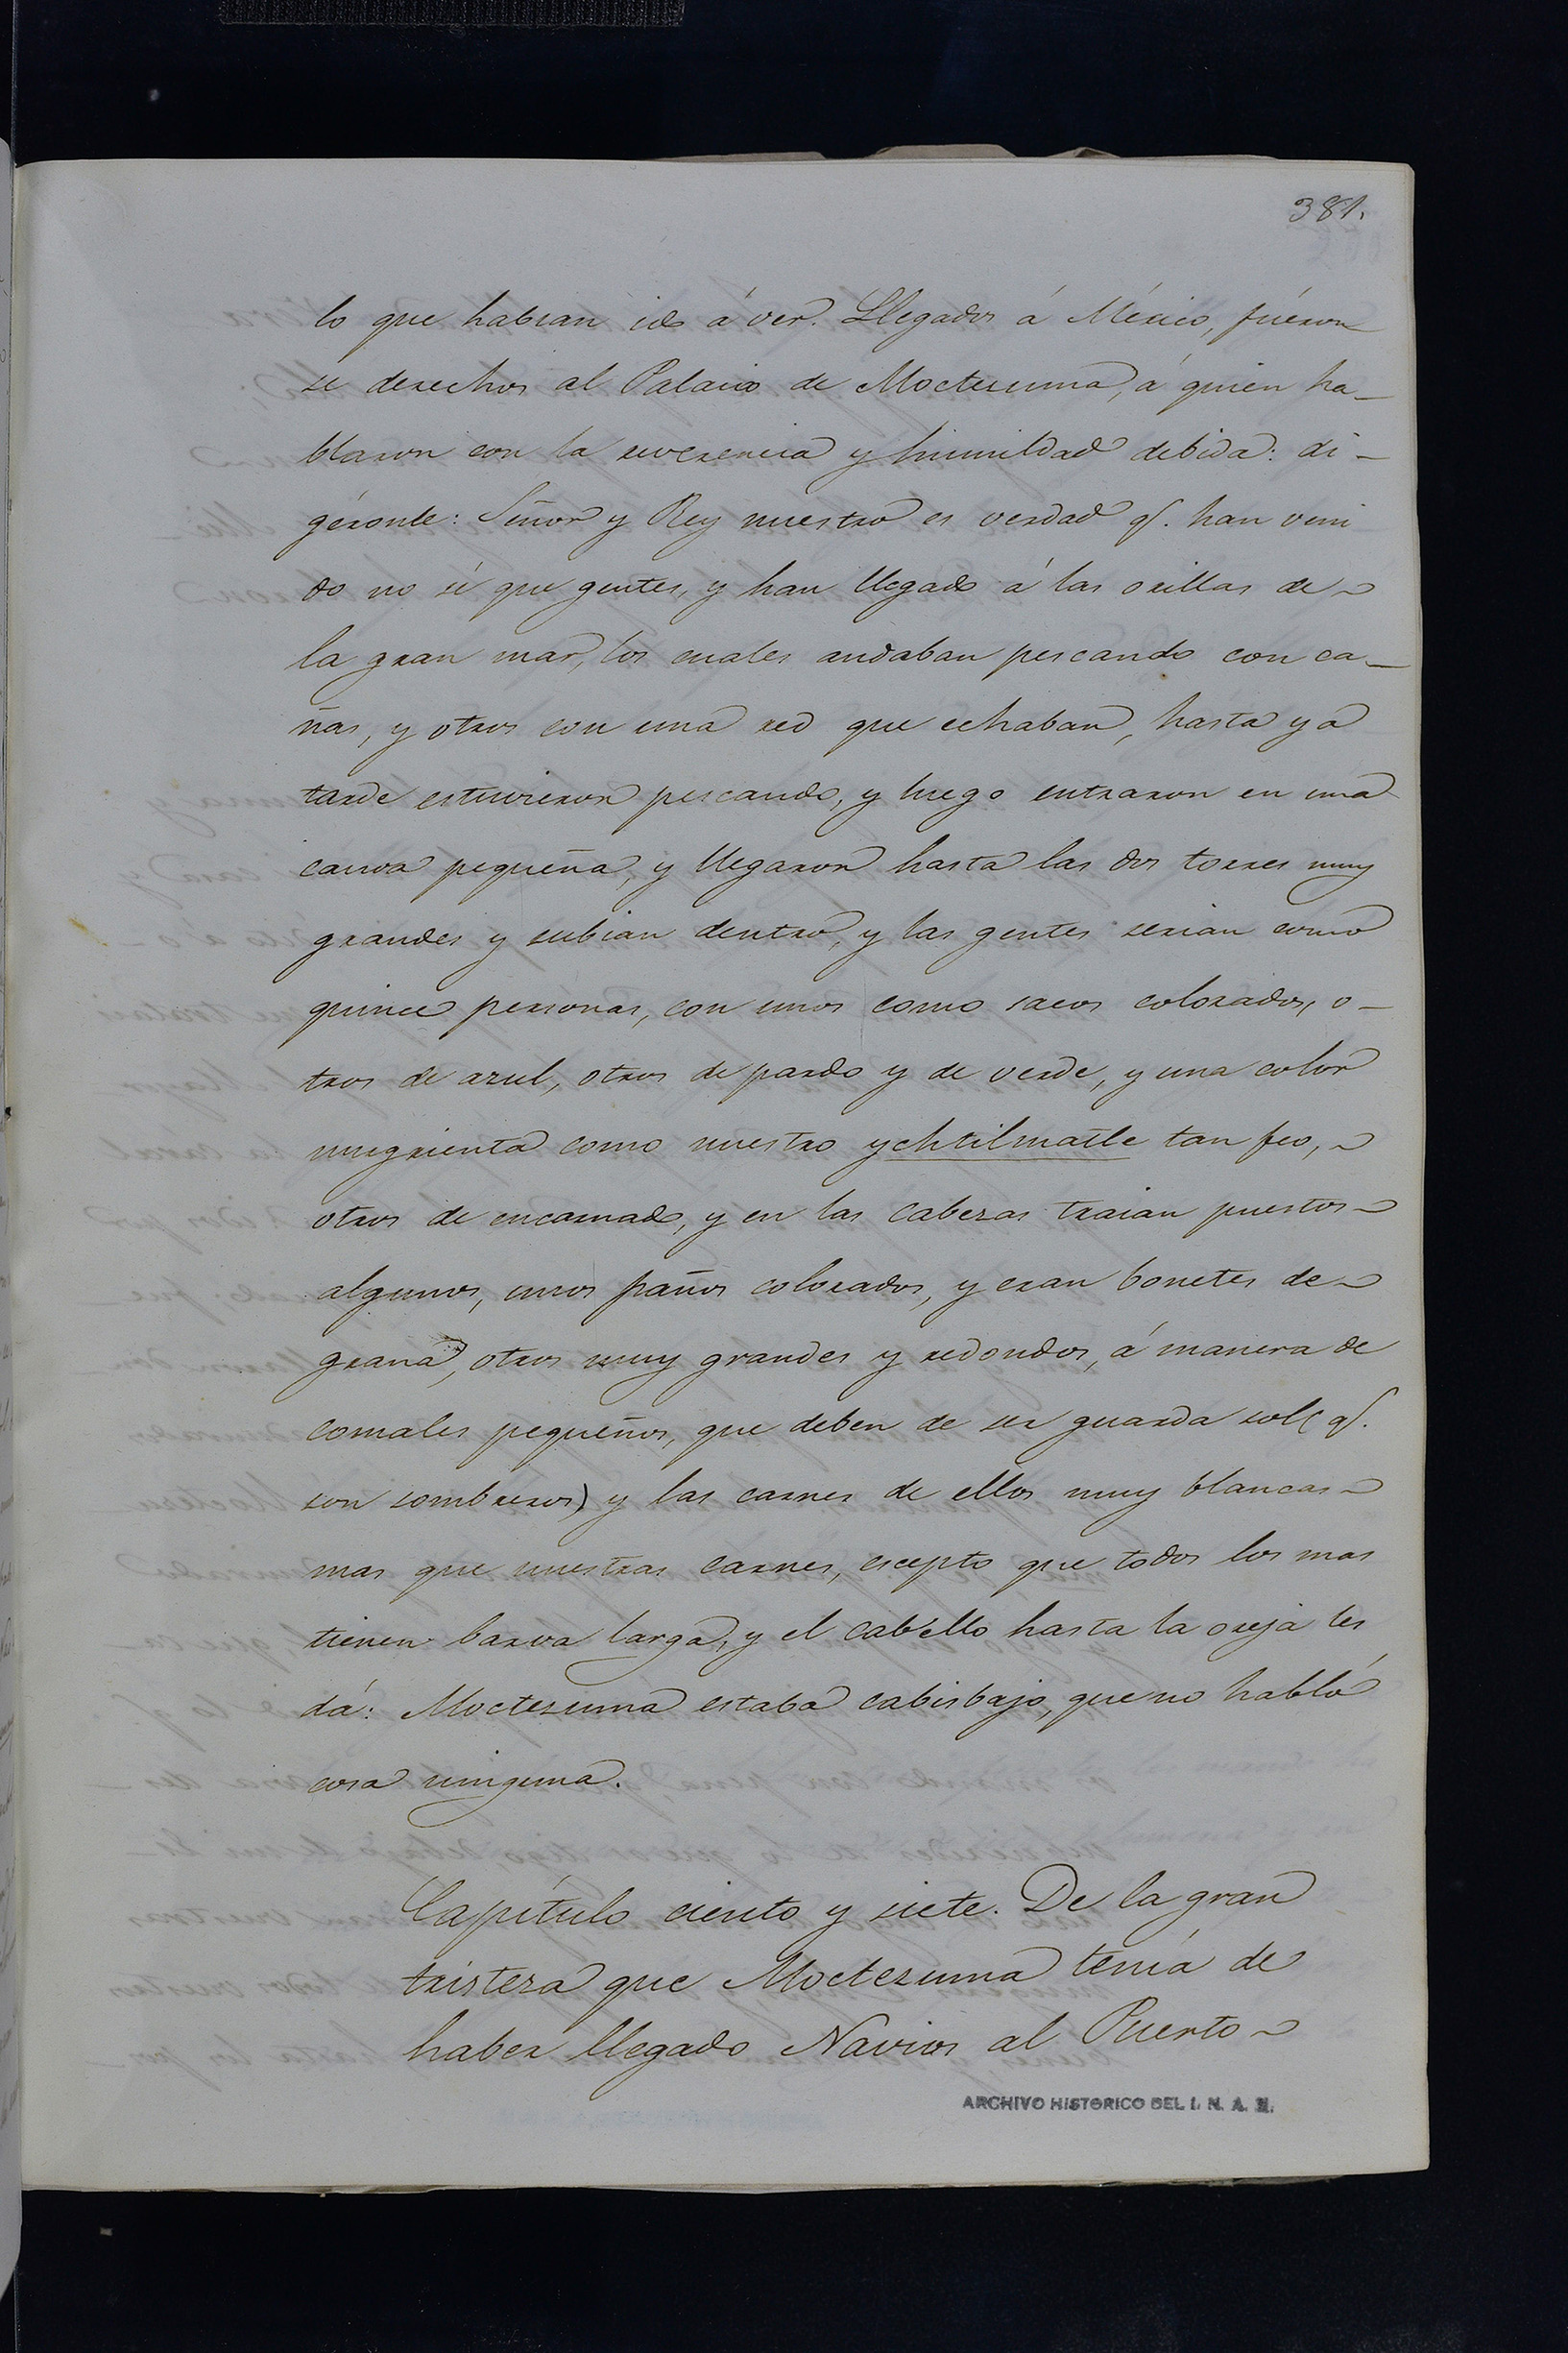 381.
lo que habian ido á ver. Llegados á México, fuéron
se derechos al Palacio de Moctezuma, á quien ha_
blaron con la reverencia y humildad debida: di_
géronle: Señor y Rey nuestro es verdad q.^ han veni
do no sé que gentes, y han llegado á las orillas de
la gran mar, los cuales andaban pescando con ca_
ñas, y otros con una red que echaban, hasta ya
tarde estuvieron pescando, y luego entraron en una
canoa pequeña, y llegaron hasta las dos torres muy
grandes y subian dentro, y las gentes serian como
quince personas, con unos como sacos colorados, o_
tros de azul, otros de pardo y de verde, y una color
mugrienta como nuestro ychtilmatle tan feo,
otros de encarnado, y en las cabezas traian puestos
algunos, unos paños colorados, y eran bonetes de
grana, otros muy grandes y redondos, á manera de
comales pequeños, que deben de ser guarda sol (q.^
son sombreros) y las carnes de ellos muy blancas
mas que nuestras carnes, escepto que todos los mas
tienen barva larga, y el cabello hasta la oreja les
dá: Moctezuma estaba cabisbajo, que no habló
cosa ninguna.
Capítulo ciento y siete. De la gran
tristeza que Moctezuma tenía de
haber llegado Navios al Puerto
ARCHIVO HISTORICO DEL I. N. A. H.